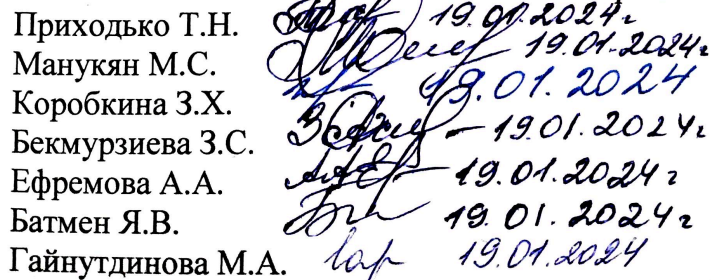 Приходько Т.Н. 19.01.2024г
Манукян М.С. 19.01.2024г
Коробкина З.Х. 19.01.2024
Бекмурзиева З.С. 19.01.2024г
Ефремова А.А. 19.01.2024г
Батмен Я.В. 19.01.2024г
Гайнутдинова М.А. 19.01.2024